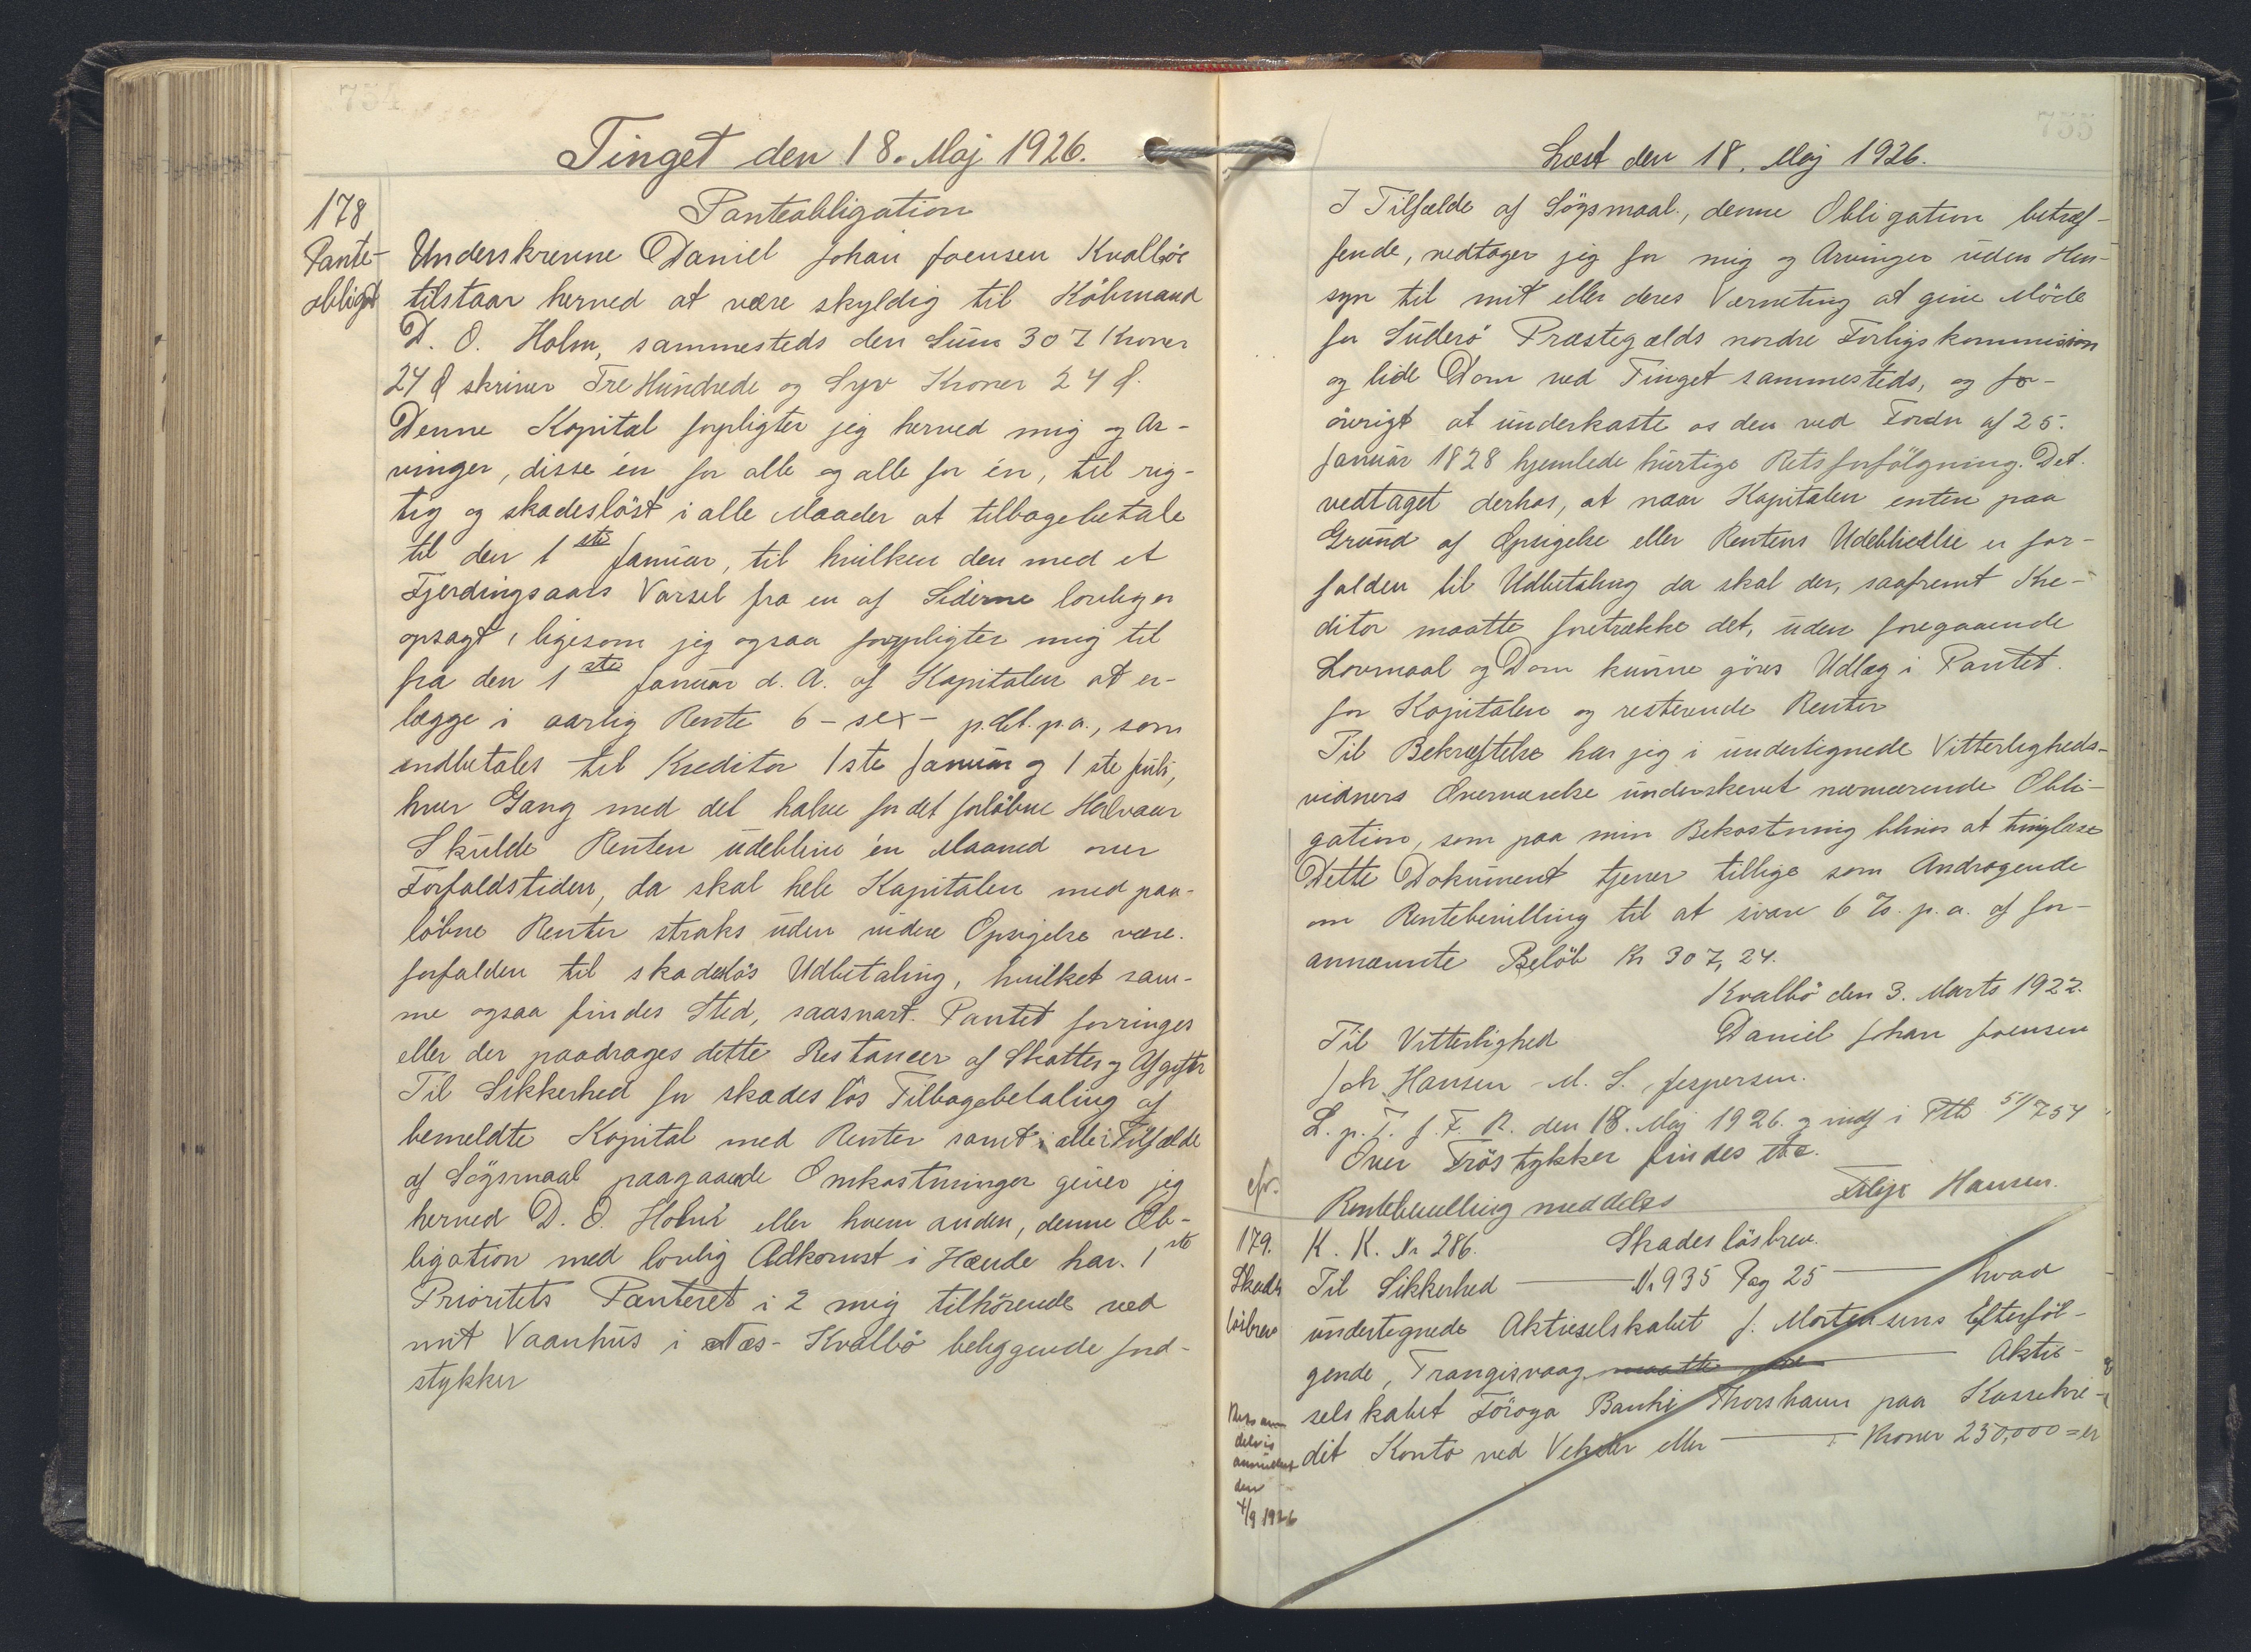 Tinget den 18. Maj 1926.
178
Pante-
obligat
Panteobligation
Underskrevne Daniel Johan Joensen Kvalböe
tilstaar herved at være skyldig til Köbmand
D. O. Holm, sammesteds den Sum 307 Kroner
24 Ø skriver Tre Hundrede og Syv Kroner 24 Ø.
Denne Kapital forpligter jeg herved mig og Ar-
vinger, disse én for alle og alle for én, til rig-
tig og skadesløst i alle Maader at tilbagebetale
til den 1ste Januar, til hvilken den med et
Fjerdingsaars Varsel fra en af Siderne lovlig er
opsagt, ligesom jeg ogsaa forpligter mig til
fra den 1ste Januar d. A. af Kapitalen at er-
lægge i aarlig Rente 6 - sex - p. Ct. p. a., som
indbetales til Kreditor 1ste Januar og 1ste Juli,
hver Gang med det halve for det forløbne Halvaar
Skulde Renten udeblive én Maaned over
Forfaldstiden, da skal hele Kapitalen med paa-
löbne Renter straks uden videre Opsigelse være.
forfalden til skadeslös Udbetaling, hvilket sam-
me ogsaa findes Sted, saasnart Pantet forringes
eller der paadrages dette Restancer af Skatter og Afgifter
Til Sikkerhed for skadeslös Tilbagebetaling af
bemeldte Kapital med Renter samt i alle i Tilfælde
af Sögsmaal paagaaende Omkostninger giver jeg
herved D. O. Holm eller hvem anden, denne Ob-
ligation med lovlig Adkomst i Hænde har. 1ste
Prioritets Panteret i 2 mig tilhörende ved
mit Vaanhus i Næs - Kvalbö beliggende Jord-
stykker
Læst den 18. Maj 1926.
I Tilfælde af Sögsmaal, denne Obligation betræf-
fende, vedtager jeg for mig og Arvinger uden Hen-
syn til mit eller deres Værneting at give Möde
for Suderö Præstegælds nordre Forligskommission
og lide Dom ved Tinget sammesteds, og for-
övrigt at underkaste os den ved Fordn af 25.
Januar 1828 hjemlede hurtige Retsforfölgning. Det
vedtaget derhos, at naar Kapitalen enten paa
Grund af Opsigelse eller Rentens Udeblivelse er for-
falden til Udbetaling da skal der, saafremt Kre-
ditor maatte foretrække det, uden foregaaende
Lovmaal og Dom kunne göres Udlæg i Pantet.
for Kapitalen og resterende Renter
Til Bekræftelse har jeg i undertignede Vitterligheds-
vidners Overværelse underskrevet nærværende Obli-
gation, som paa min Bekostning blives at tinglæse
Dette Dokument tjener tillige som Andragende
om Rentebevilling til at svare 6 % p. a. af for-
annævnte Belöb Kr 307,24.
Kvalbö den 3. Marts 1922.
Til Vitterlighed Daniel Johan Joensen
Joh Hansen - M. S. Jespersen.
L. p. T. f. F. R. den 18. Maj 1926. og indf i Ptb 51/754
Over Fröstykker findes
Rentebevilling meddeles Filip Hansen.
179.
Skades
lösbrev
K. K. Nr 286. Skadeslösbrev.
Til Sikkerhed — Nr 935 Pag 25 — hvad
undertegnede Aktieselskabet J. Mortensens Efterföl-
gende, Trangisvaag maatte — Aktie-
selskabet Föroya Banki Thorshavn paa Kassekre-
dit Konto ved Veksler eller — Kroner 250,000 = er
den
4/9 1926